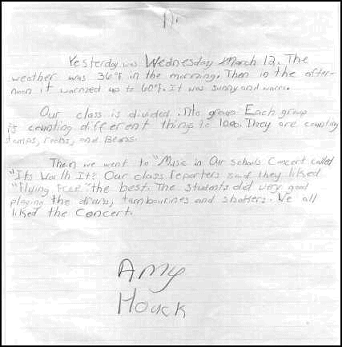 Yesterday was Wednesday March 12. The
weather was 36°F in the morning. Then in the after-
noon it warmed up to 60°F. It was sunny and warm.
Our class is divided into groups. Each group
is counting different things to 1000. They are counting
and Beans.
Then we went to "Music in Our Schools Concert called
"It's Worth It". Our class reporters said they liked
"Flying Free" the best. The students did very good
playing the drums, tambourines and shakers. We all
liked the Concert.
Amy
Houck